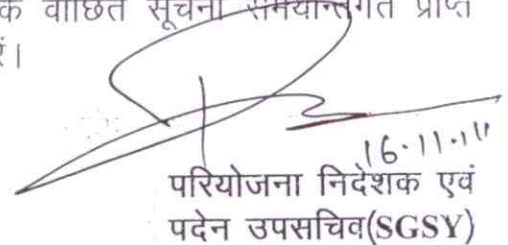 क वांछित सूचना समयान्तर्गत प्राप्त
रें।
16.11.11
परियोजना निदेशक एवं
पदेन उपसचिव(SGSY)